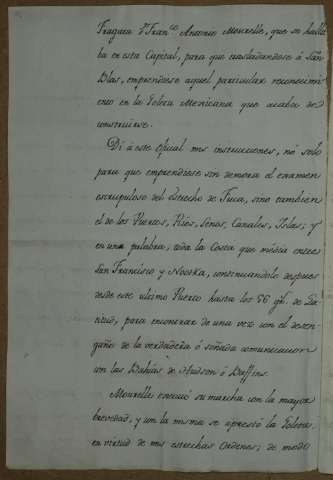 Fragata Dn. Franco. Antonio Mourelle, que se halla
ba en esta Capital, para que trasladandose á San
Blas, emprendiese aquel particular reconocimi
ento en la Goleta Mexicana que acaba de
construirse.
Dí á este Oficial mis instrucciones, nó solo
para que emprendiese sin demora el examen
escrupuloso del Estrecho de Fuca, sino tambien
el de los Puertos, Rios, Senos, Canales, Islas; y
en una palabra, toda la Costa que media entre
San Francisco y Nootka, continuandolo despues
desde este ultimo Puerto hasta los 56 gs. de La-
titud, para encontrar de una vez con el desen-
gaño de la verdadera ó soñada comunicacion
con las Bahias de Hudson ó Baffins.
Mourelle executó su marcha con la mayor
brevedad, y con la misma se aprestó la Goleta
en virtud de mis estrechas Ordenes; de modo